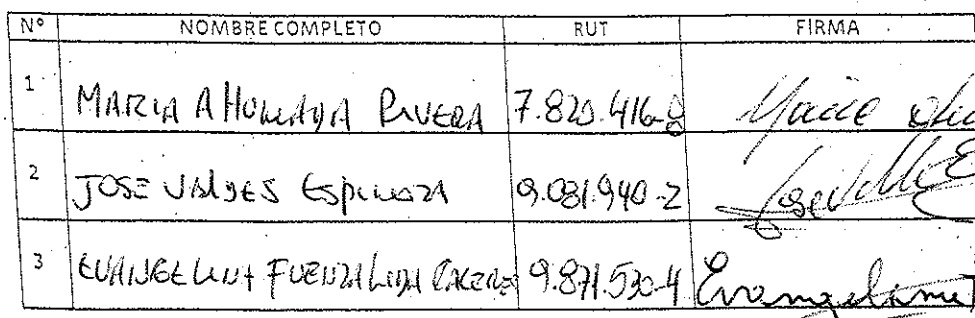 Nº NOMBRE COMPLETO RUT FIRMA
1 MARIA AHUMADA RIVERA 7.820.416-8 Maria
2 JOSE VALDES ESPINOZA 9.081.940-2 Jose
3 EVANGELINA FUENZALIDA CACERES 9.871.530-4 Evangelina